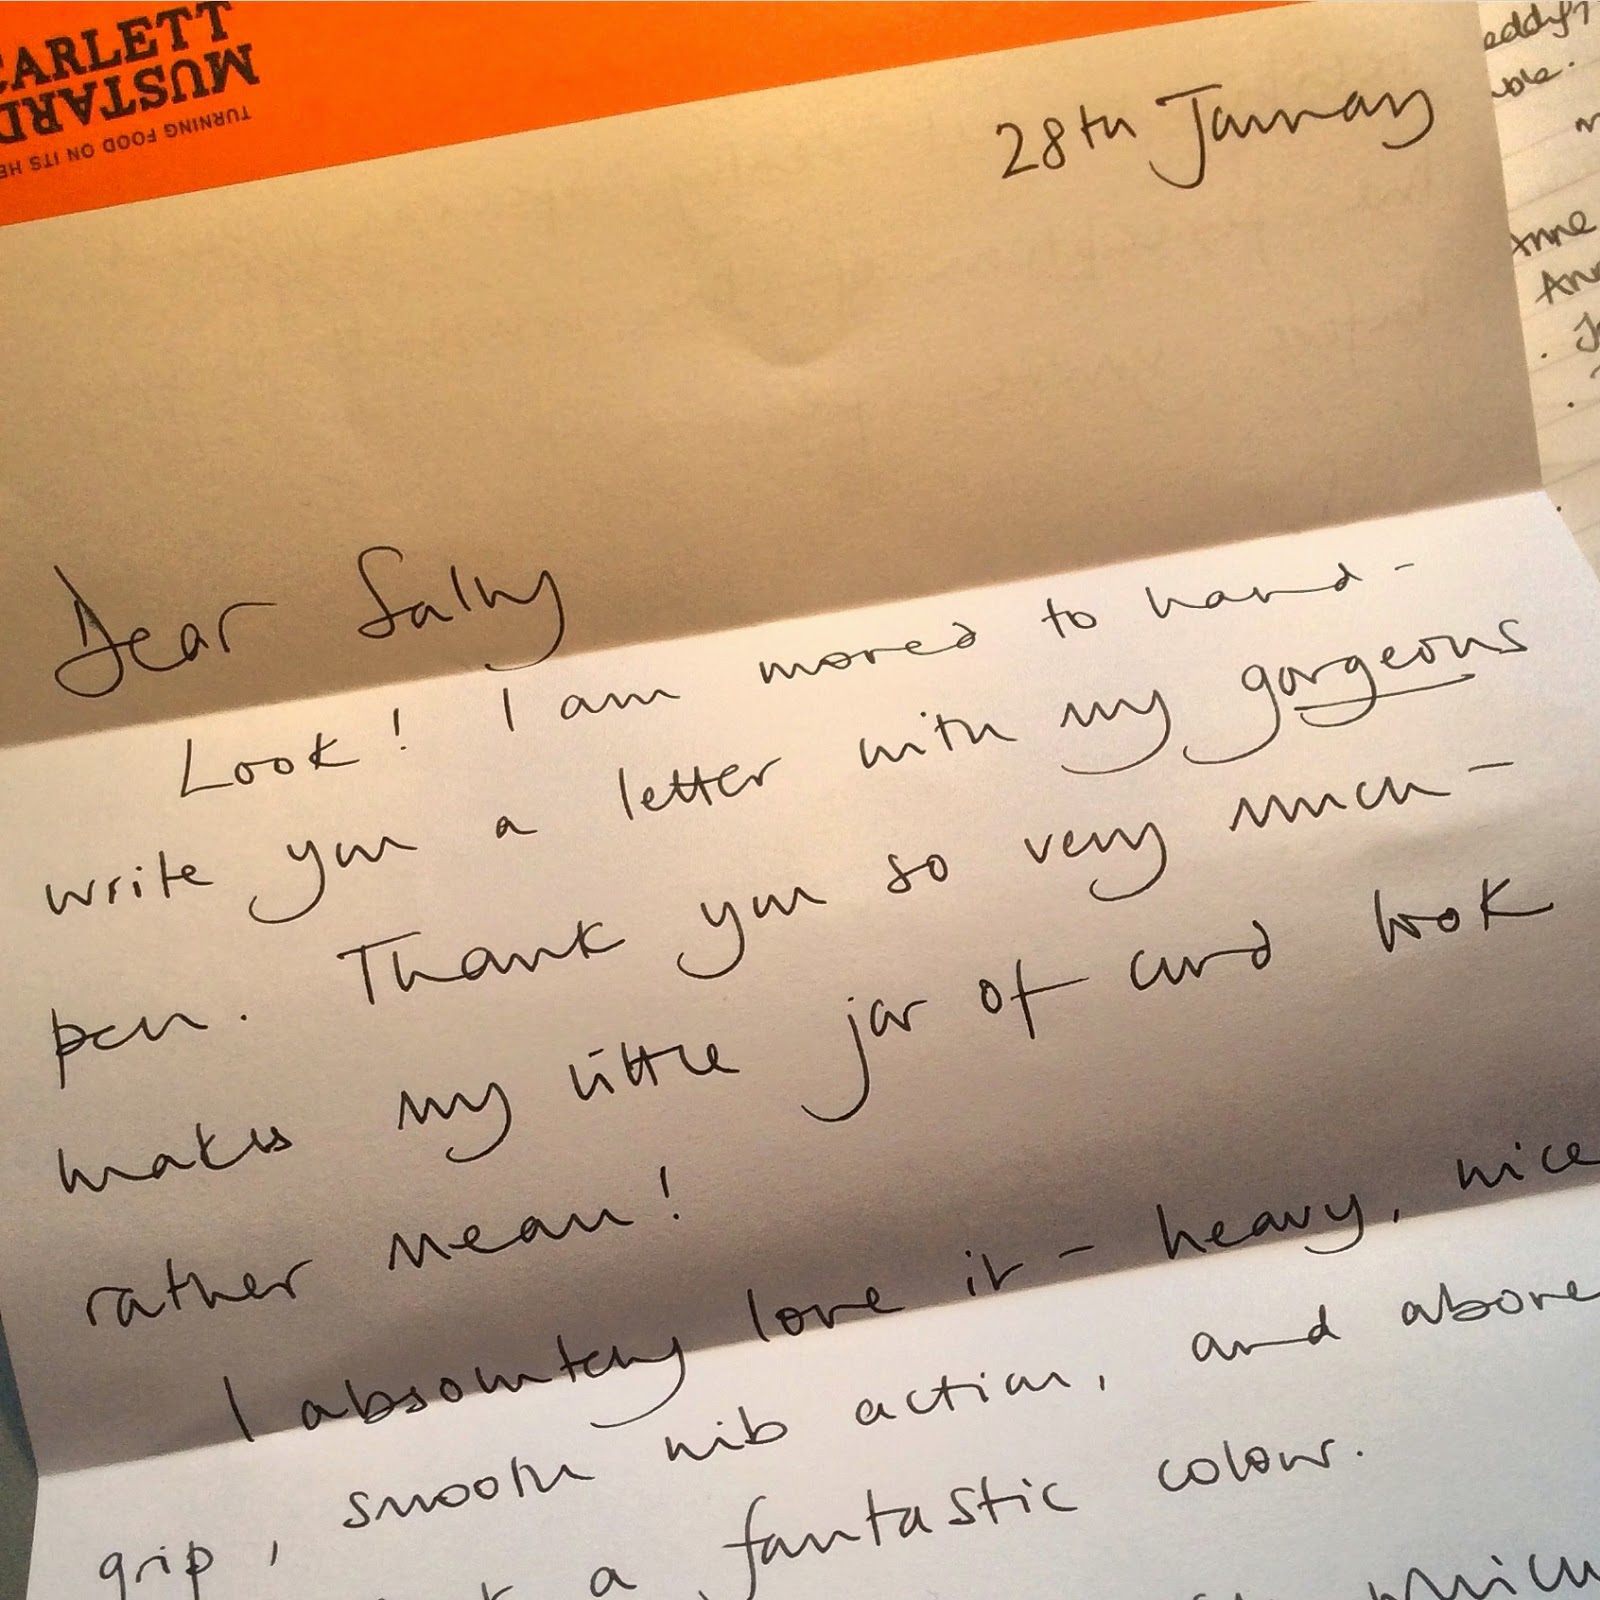 CARLETT
MUSTARD
TURNING FOOD ON ITS HE
28th January
Dear Sally
Look! I am moved to hand-
write you a letter with my gorgeous
pen. Thank you so very much -
makes my little jar of curd look
rather mean!
I absolutely love it - heavy, nice
grip, smooth nib action, and above
a fantastic colour.
which
Anne